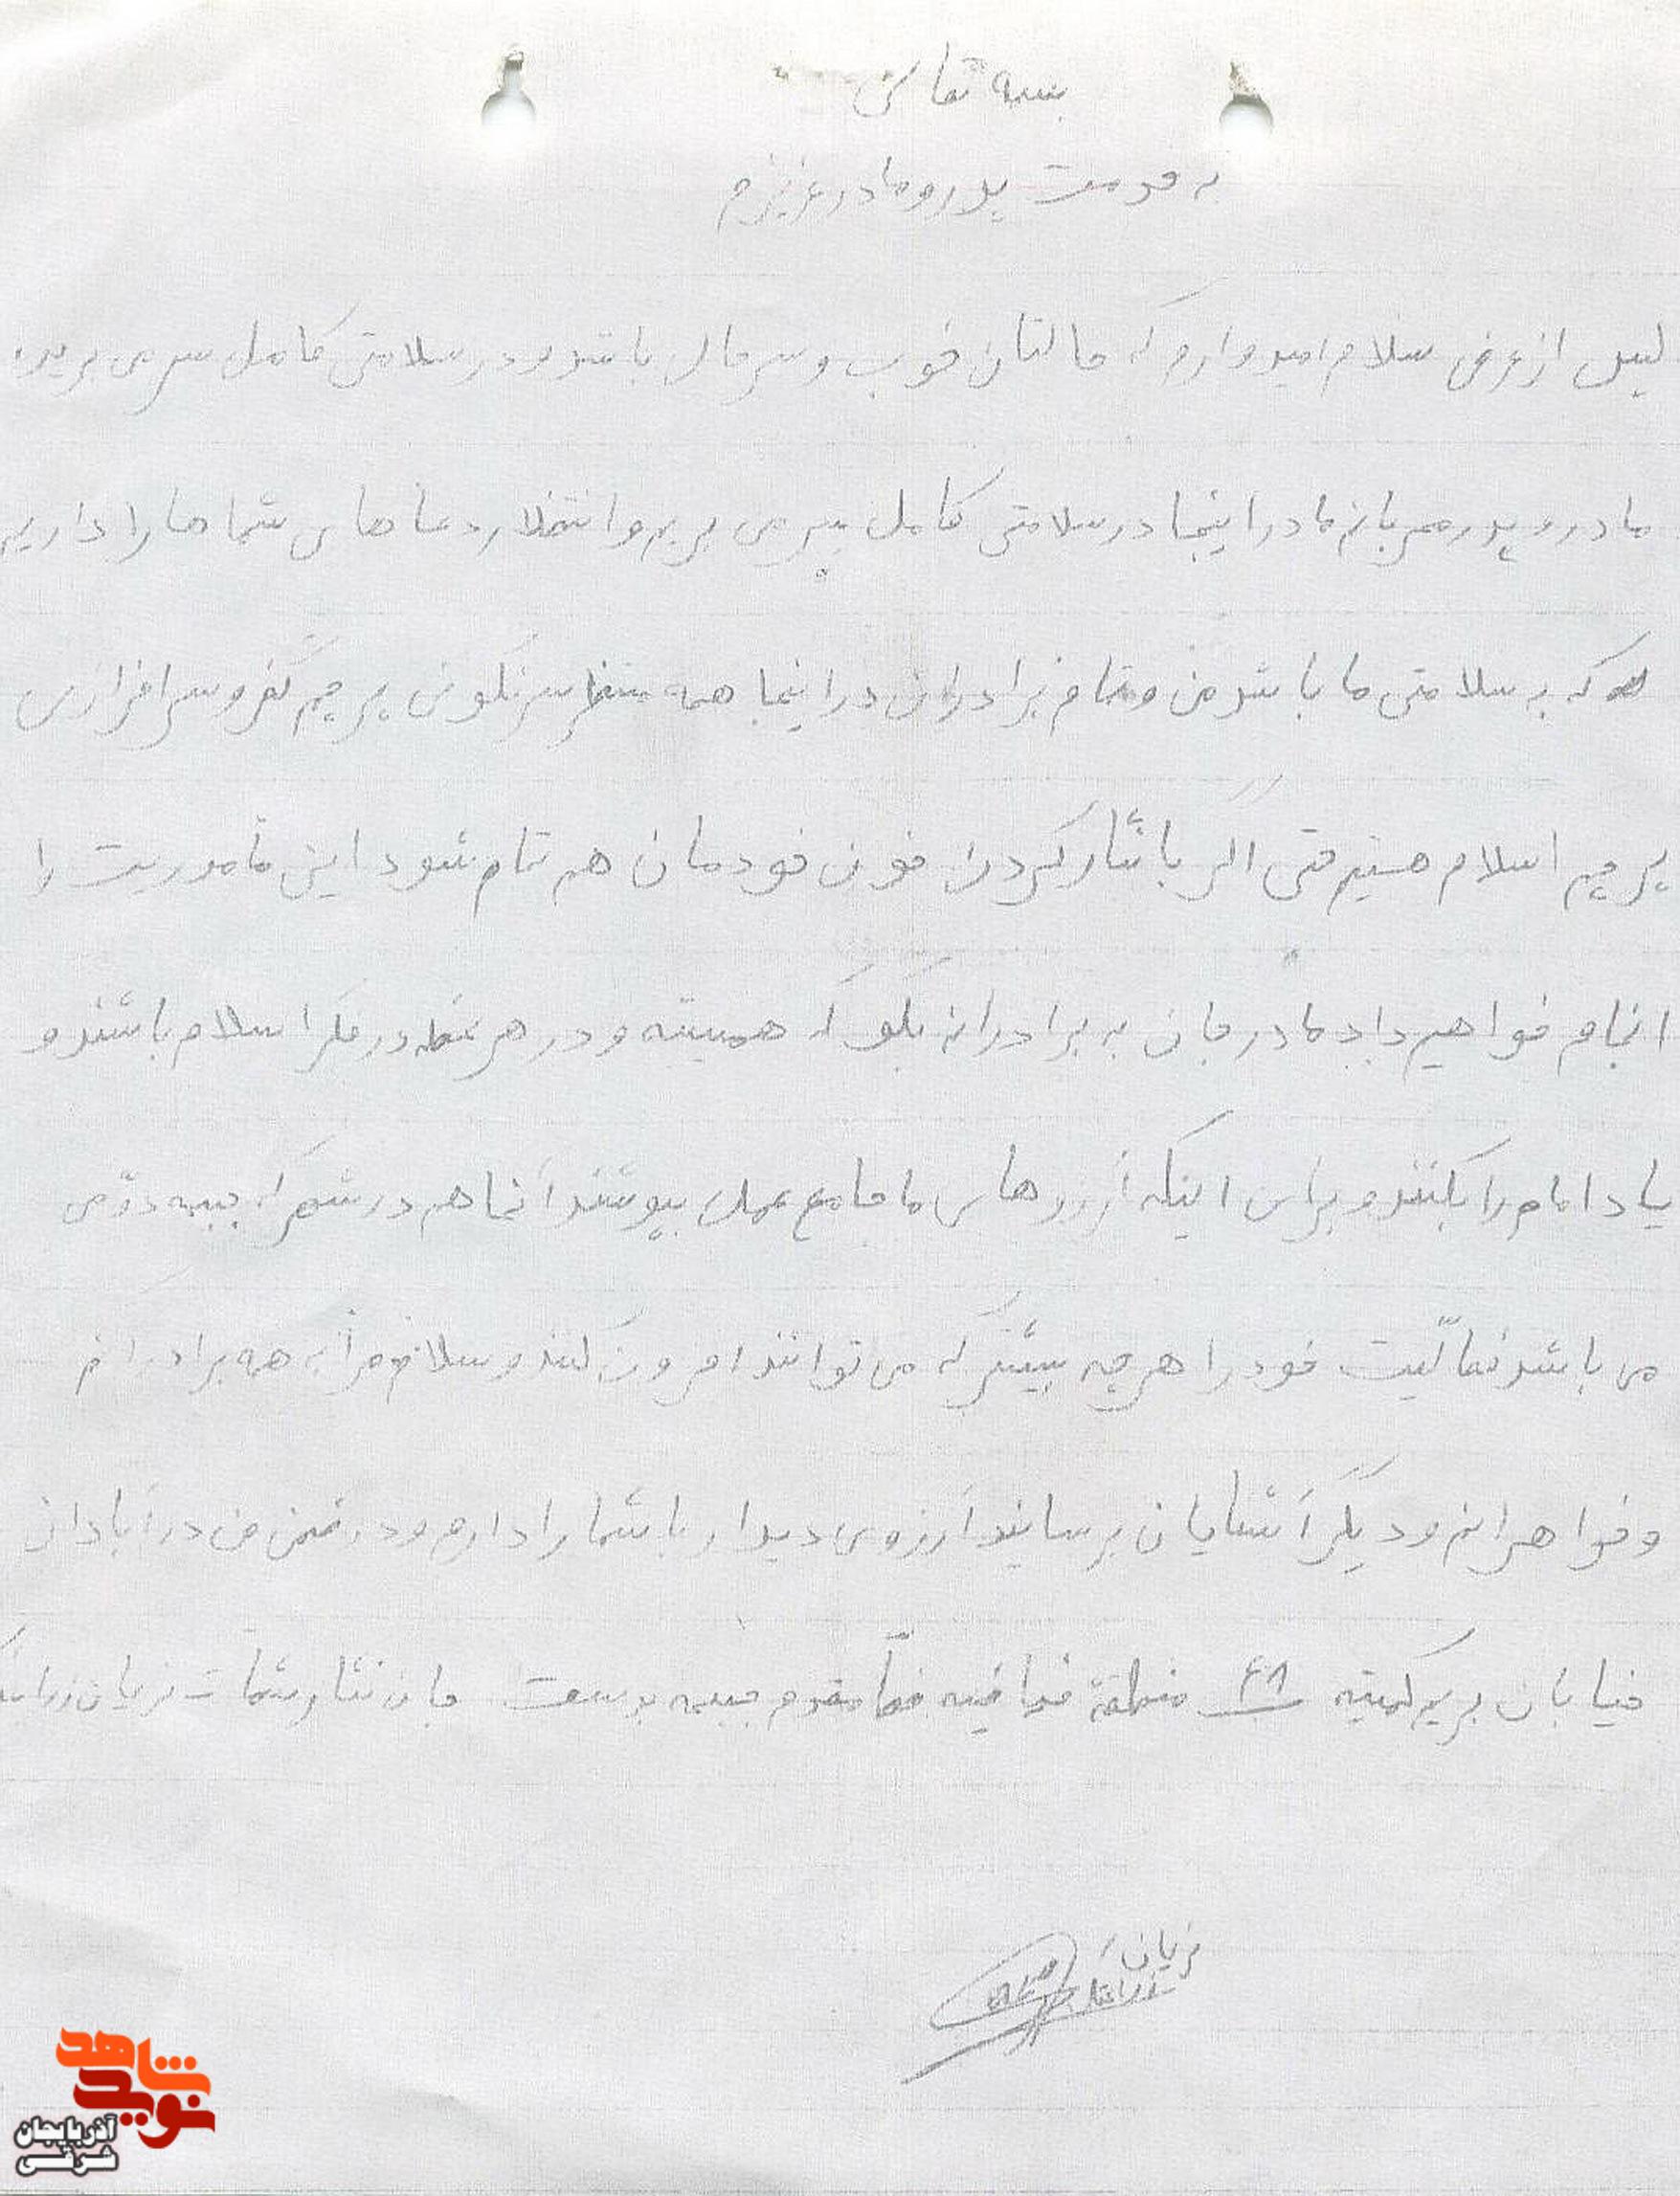 بسمه تعالی
به خدمت پدر و مادر عزیزم
پس از عرض سلام امیدوارم که حالتان خوب و سرحال باشد و در سلامتی کامل سر می برید.
مادر و پدر مهربانم ما در اینجا در سلامتی کامل بسر می بریم و انتظار دعاهای شما ها را داریم
که به سلامتی ما باشد من و تمام برادران در اینجا همه منتظر سرنگونی پرچم کفر و سرافرازی
پرچم اسلام هستیم حتی اگر با نثار کردن خون خودمان هم تمام شود این مأموریت را
انجام خواهیم داد مادر جان به برادرانم بگو که همیشه و در هر لحظه در فکر اسلام باشند و
یاد امام را بکنند و برای اینکه آرزوهای ما جامع عمل بپوشند آنها هم در شهر که جبهه دوّمی
می باشد فعالّیت خود را هر چه بیشتر که می توانند افزون کنند و سلام مرا به همه برادرانم
و خواهرانم و دیگر آشنایان برسانید آرزوی دیدار با شما را دارم و در ضمن من در آبادان
خیابان بریم کمیته ۴۸ منطقه خط مقدم جبهه جان نثار شما قربان
قربان
نوید شاهد
آذربایجان شرقی